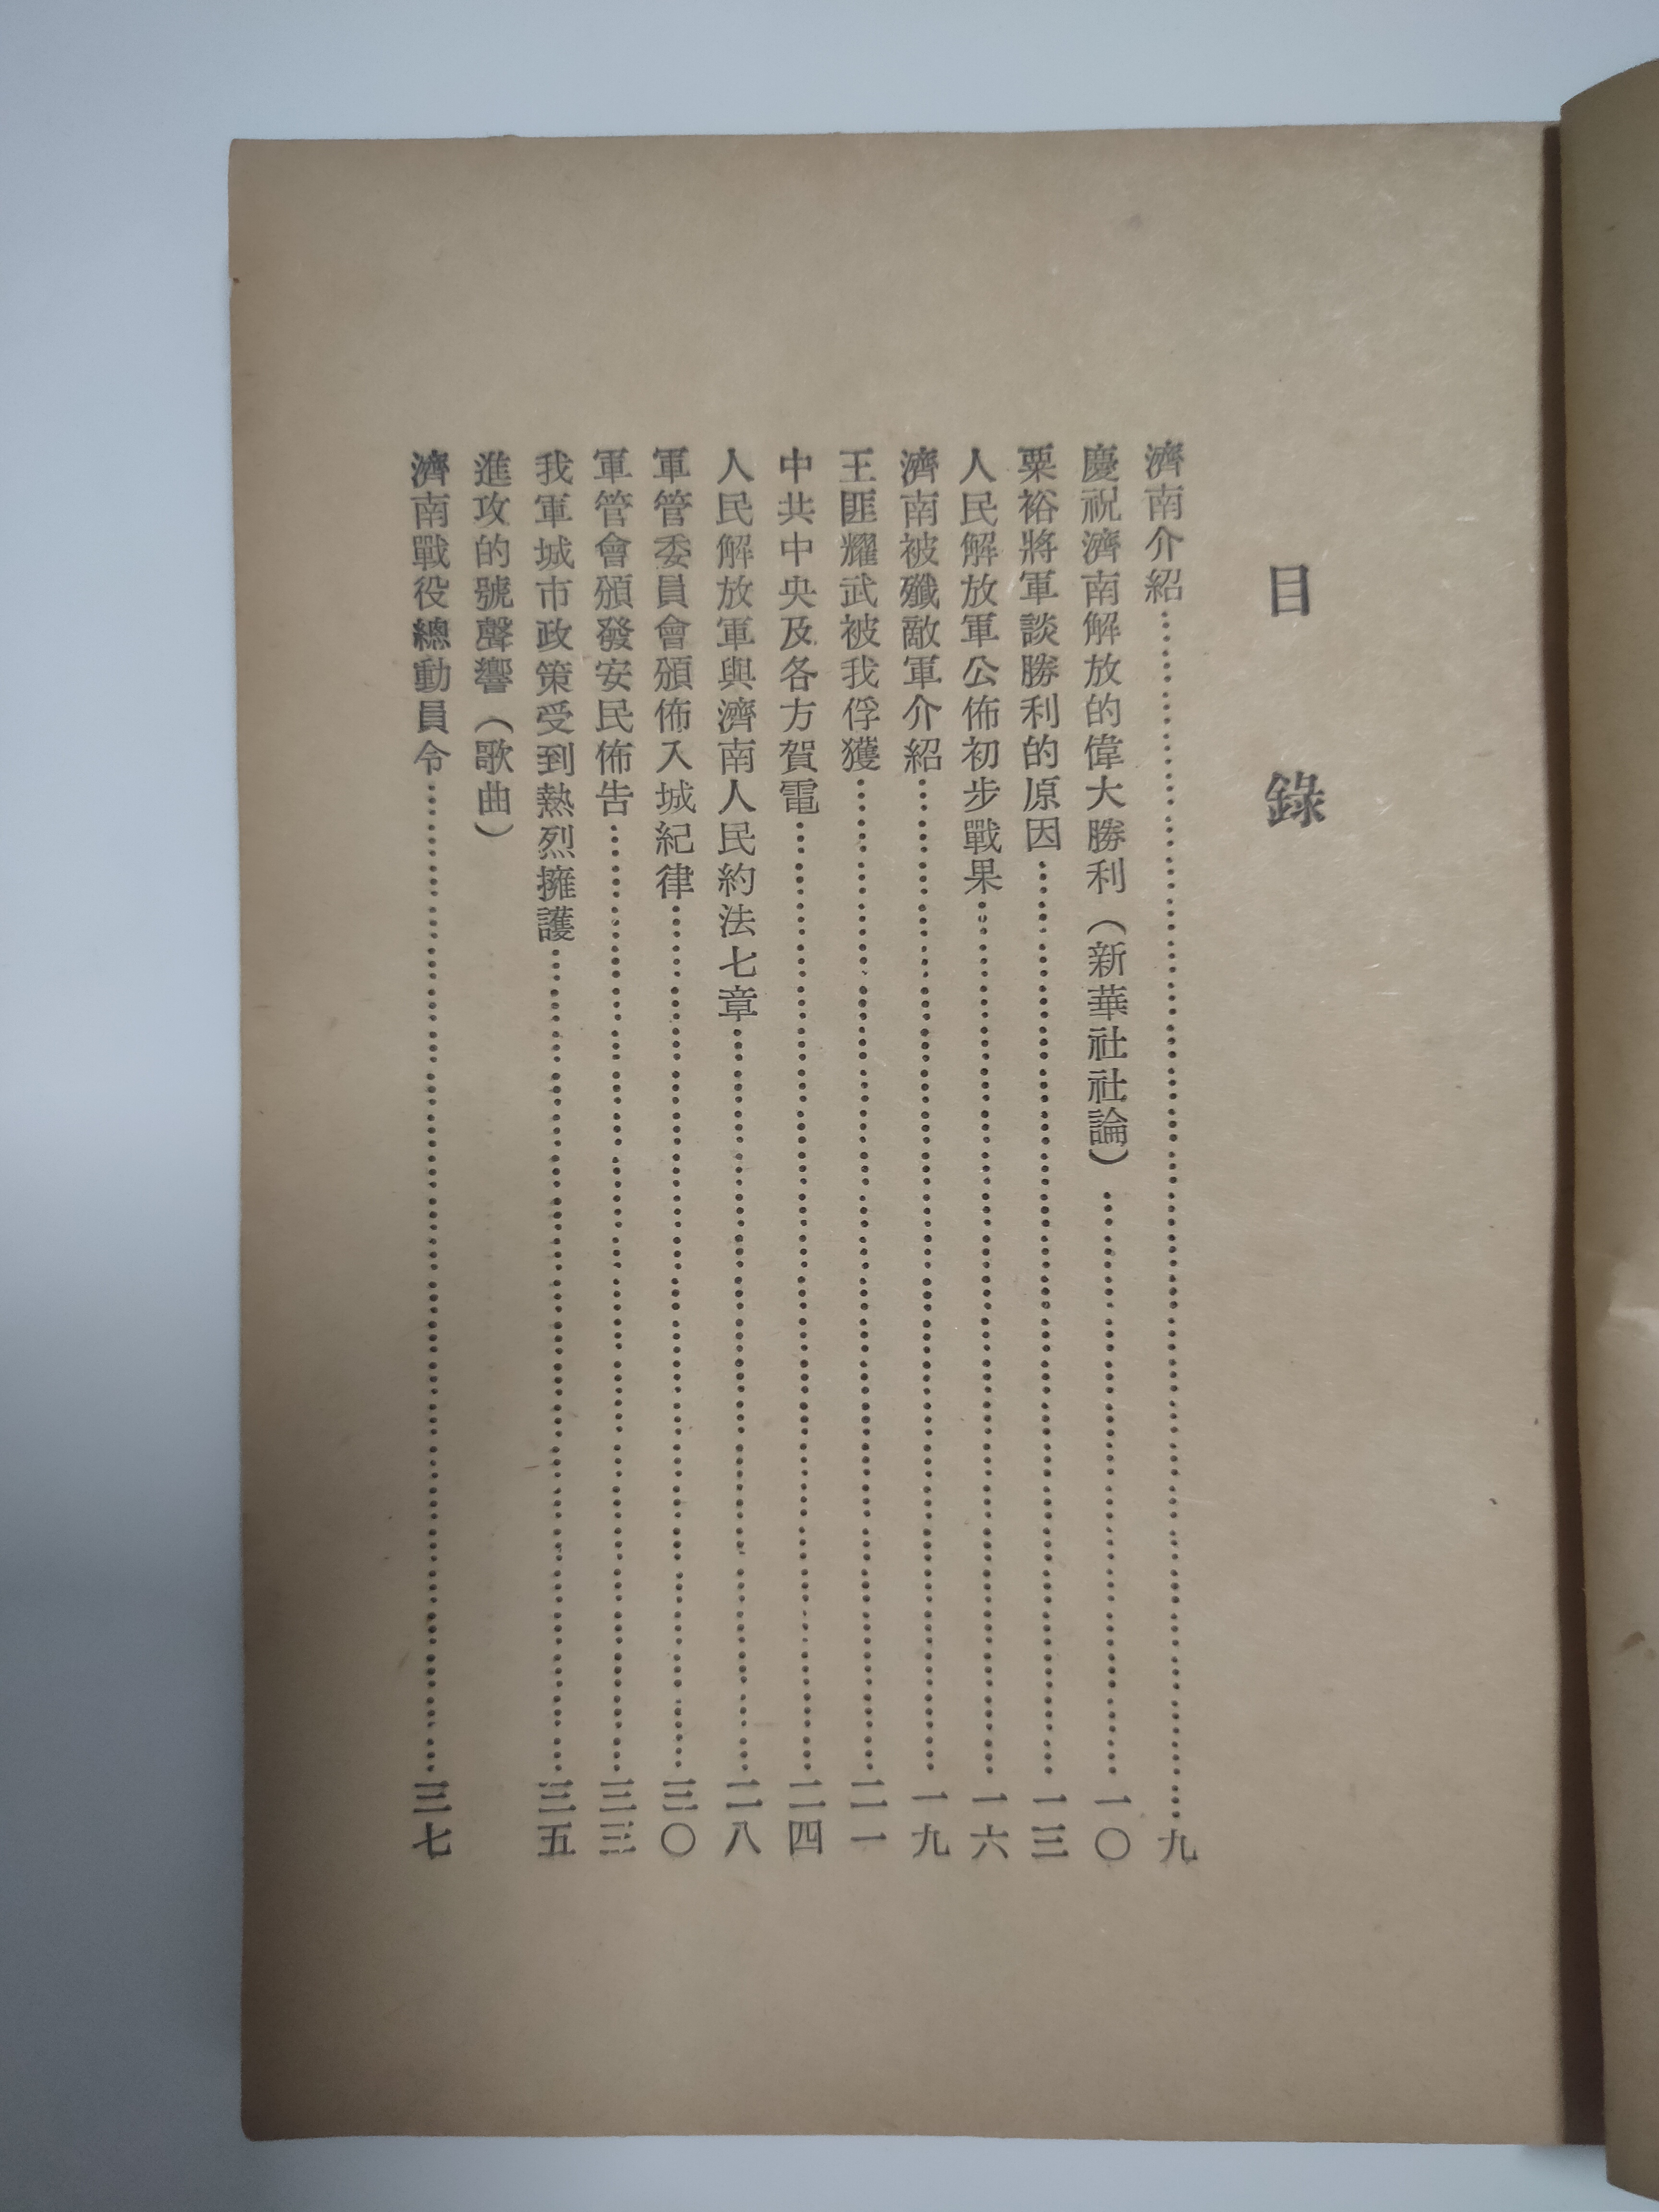 目錄
濟南介紹……九
慶祝濟南解放的偉大勝利（新華社社論）……一〇
粟裕將軍談勝利的原因……一三
人民解放軍公佈初步戰果……一六
濟南被殲敵軍介紹……一九
王匪耀武被我俘獲……二一
中共中央及各方賀電……二四
人民解放軍與濟南人民約法七章……二八
軍管委員會頒佈入城紀律……三〇
軍管會頒發安民佈告……三三
我軍城市政策受到熱烈擁護……三五
進攻的號聲響（歌曲）
濟南戰役總動員令……三七